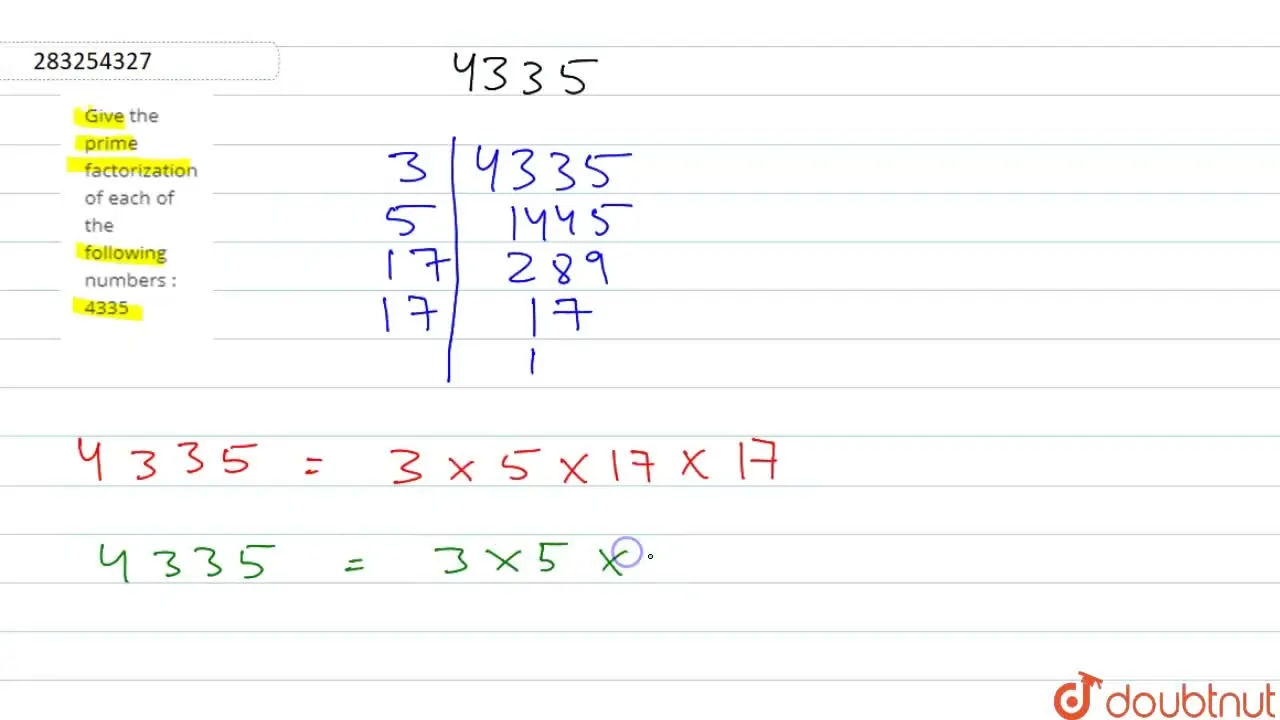 283254327
4335
Give the
prime
factorization
of each of
the
following
numbers :
4335
3 | 4335
5 | 1445
17 | 289
17 | 17
| 1
4335 = 3 × 5 × 17 × 17
4335 = 3 × 5 ×
doubtnut